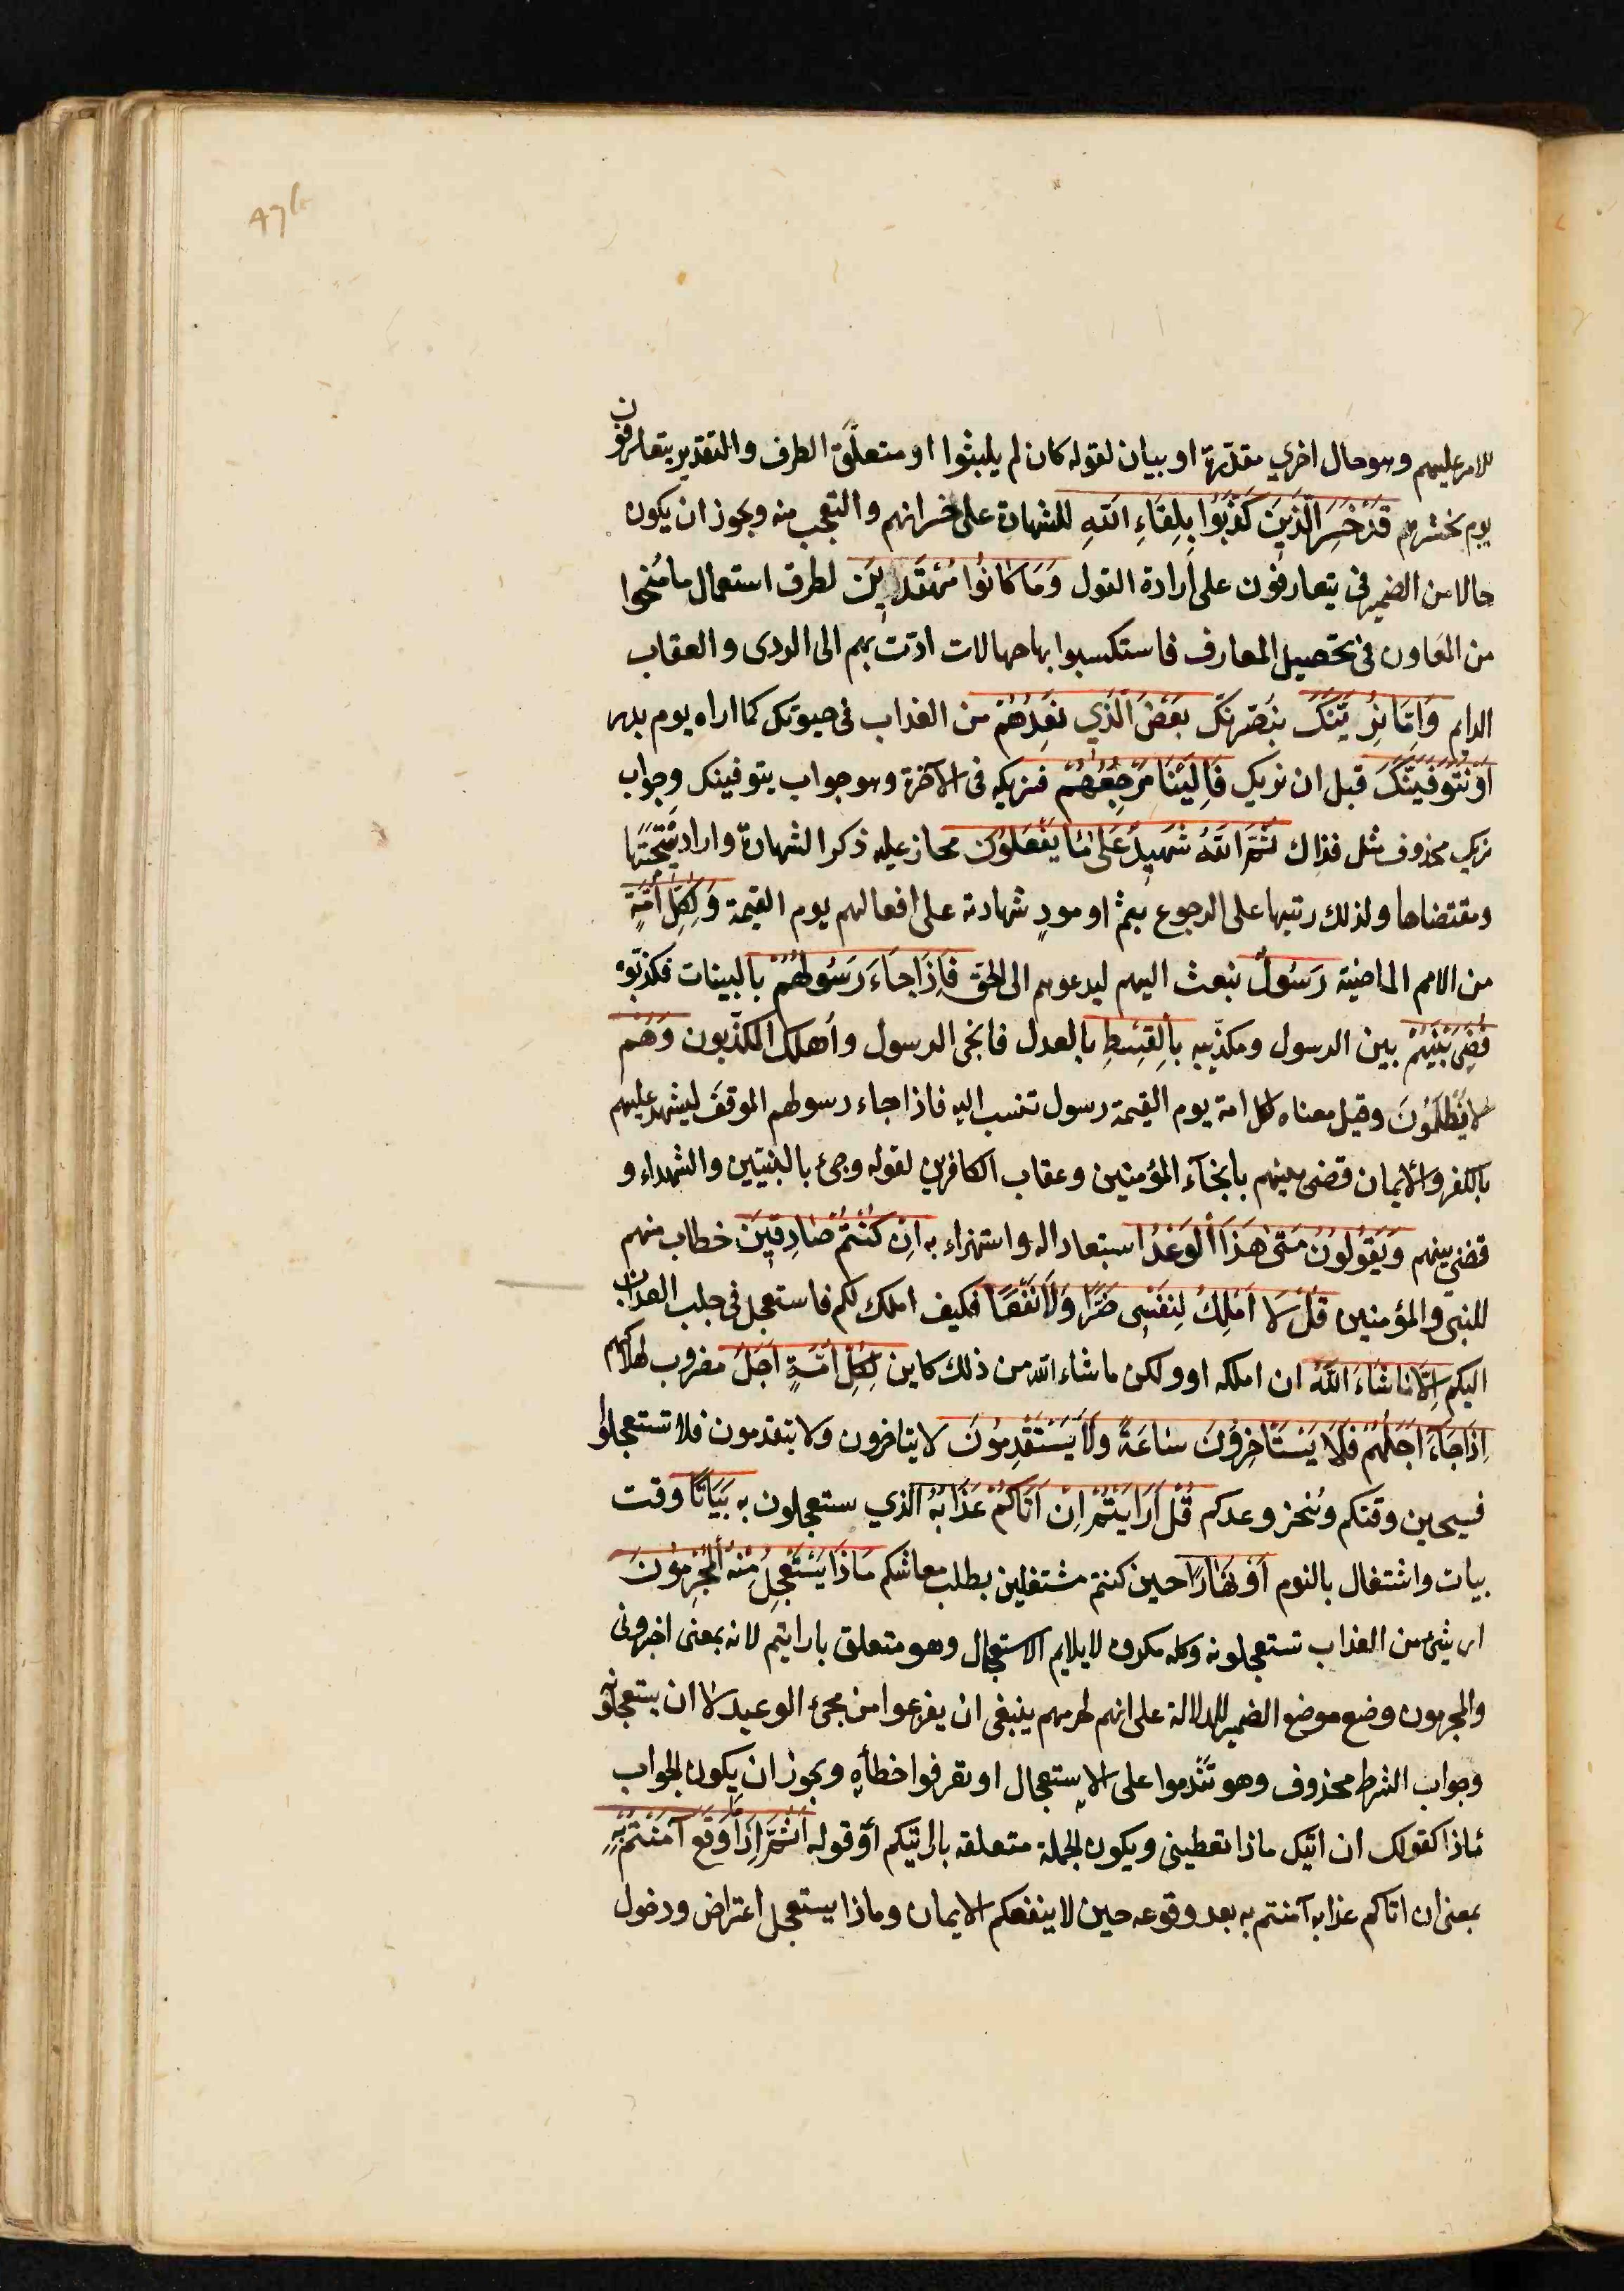 47b
للامر عليهم وهو حال اخري مقدرة او بيان لقوله كان لم يلبثوا او متعلّق الظرف والتقدير يتعارفون
يوم نحشرهم قَدْ خَسِرَ الَّذِينَ كَذَّبُوا بِلِقَاءِ اللَّهِ للشهادة على خسرانهم والتعجب منه ويجوز ان يكون
حالا من الضمير في يتعارفون على ارادة القول وَمَا كَانُوا مُهْتَدِينَ لطرق استعمال ما مُنحوا
من المعاون في تحصيل المعارف فاستكسبوا بها جهالات ادّت بهم الى الردى والعقاب
الدايم وَاِمَّا نُرِيَنَّكَ نبصّرنك بَعْضَ الَّذِي نَعِدُهُمْ من العذاب في حيوتك كما اراه يوم بدر
اَوْ نَتَوَفَّيَنَّكَ قبل ان نريك فَاِلَيْنَا مَرْجِعُهُمْ فنريكه في الآخرة وهو جواب يتوفينك وجواب
نريك محذوف مثل فذاك ثُمَّ اللَّهُ شَهِيدٌ عَلَى مَا يَفْعَلُونَ مجاز عليه ذكر الشهادة واراد نتيجتها
ومقتضاها ولذلك رتبها على الرجوع بثمّ او مودٍ شهادته على افعالهم يوم القيمة وَلِكُلِّ اُمَّةٍ
من الامم الماضية رَسُولٌ نبعث اليهم ليدعوهم الى الحق فَاِذَا جَاءَ رَسُولُهُمْ بالبينات فكذبوه
قُضِيَ بَيْنَهُمْ بين الرسول ومكذّبيه بِالْقِسْطِ بالعدل فانجى الرسول وأهلك المكذّبون وَهُمْ
لَا يُظْلَمُونَ وقيل معناه لكل امة يوم القيمة رسول تنسب اليه فاذا جاء رسولهم الموقف ليشهد عليهم
بالكفر والايمان قضى بينهم بانجآء المؤمنين وعقاب الكافرين لقوله وجئ بالنبيين والشهداء و
قضي بينهم وَيَقُولُونَ مَتَى هَذَا الْوَعْدُ استبعادا له واستهزاء به اِنْ كُنْتُمْ صَادِقِينَ خطاب منهم
للنبي والمؤمنين قُلْ لَا اَمْلِكُ لِنَفْسِي ضَرًّا وَلَا نَفْعًا فكيف املك لكم فاستعجل في جلب العذاب
اليكم اِلَّا مَا شَاءَ اللَّهُ ان املكه او ولكن ما شاء الله من ذلك كاين لِكُلِّ اُمَّةٍ اَجَلٌ مضروب لهلاكهم
اِذَا جَاءَ اَجَلُهُمْ فَلَا يَسْتَأخِرُونَ سَاعَةً وَلَا يَسْتَقْدِمُونَ لا يتاخرون ولا يتقدمون فلا تستعجلوا
فسيحين وقتكم وينجز وعدكم قُلْ اَرَاَيْتُمْ اِنْ اَتَاكُمْ عَذَابُهُ الذي ستعجلون به بَيَاتًا وقت
بيات واشتغال بالنوم اَوْ نَهَارًا حين كنتم مشتغلين بطلب معاشكم مَاذَا يَسْتَعْجِلُ مِنْهُ الْمُجْرِمُونَ
اى شئ من العذاب تستعجلونه وكله مكروه لا يلايم الاستعجال وهو متعلق بارايتم لانه بمعنى اخبروني
والمجرمون وضع موضع الضمير للدلالة على انهم لجرمهم ينبغي ان يفزعوا من مجئ الوعيد لا ان يستعجلوه
وجواب الشرط محذوف وهو تندموا على الاستعجال او تعرفوا خطأه ويجوز ان يكون الجواب
ماذا كقولك ان اتيتك ماذا تعطيني ويكون الجملة متعلقه بارايتكم أو قوله اَثُمَّ اِذَا مَا وَقَعَ آمَنْتُمْ بِهِ
بمعنى ان اتاكم عذابه آمنتم به بعد وقوعه حين لا ينفعكم الايمان وماذا يستعجل اعتراض ودخول